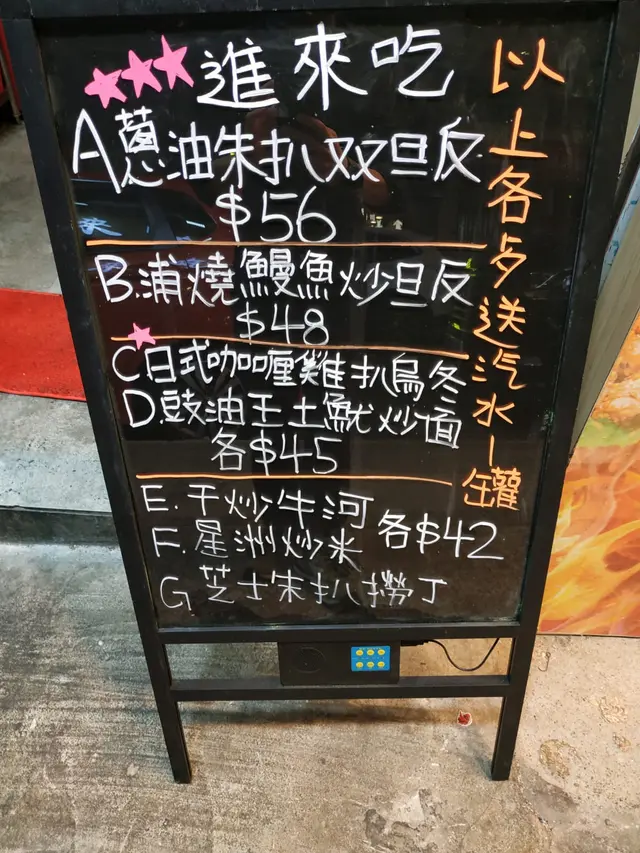 進來吃
A蔥油朱扒双旦反
$56
B.浦燒鰻魚炒旦反
$48
C日式咖喱雞扒烏冬
D.豉油王土魷炒面
各$45
E.干炒牛河
F.星洲炒米
各$42
G芝士朱扒撈丁
以上各歺送汽水一罐